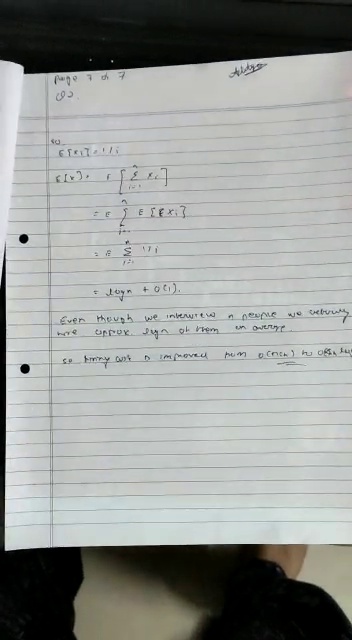 Page 7 of 7
Q2.
so
E[xi] = 1/i
E[x] = E [ n Σ i=1 xi ]
= E n Σ i=1 E[xi]
= E n Σ i=1 1/i
= logn + O(1).
Even though we interview n people we actually
hire approx logn of them on average
so hiring cost is improved from O(nch) to